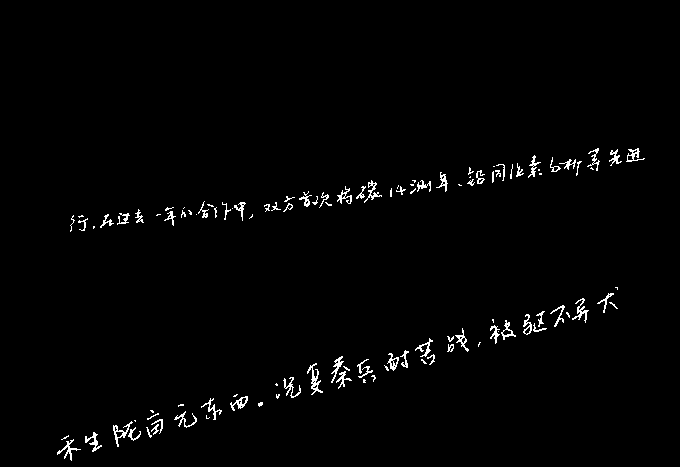 行.在过去一年的合作中,双方首次将碳14测年、铅同位素分析等先进
禾生陇亩无东西。况复秦兵耐苦战,被驱不异犬